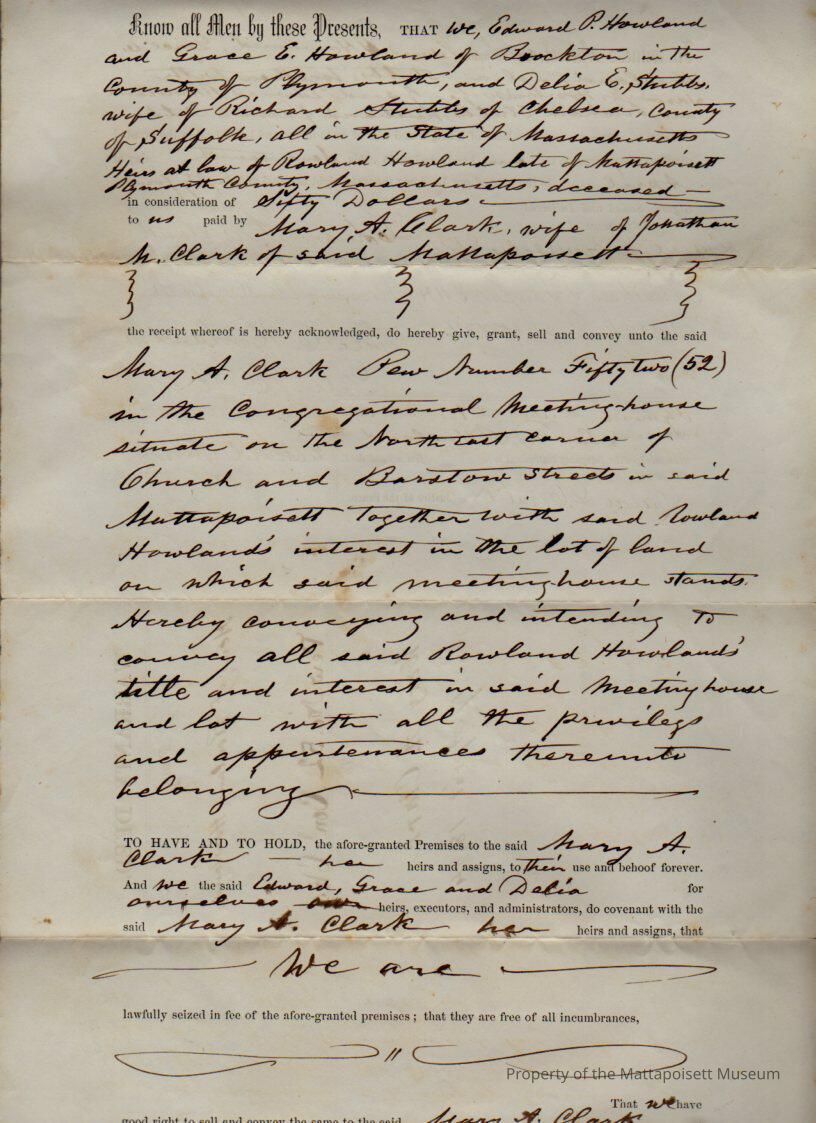 Know all Men by these Presents, THAT We, Edward P. Howland
and Grace E. Howland of Brockton in the
County of Plymouth, and Delia E. Stubbs,
wife of Richard Stubbs of Chelsea, County
of Suffolk, all in the State of Massachusetts
Heirs at law of Rowland Howland late of Mattapoisett
Plymouth County, Massachusetts, deceased
in consideration of Fifty Dollars
to us paid by Mary A. Clark, wife of Jonathan
M. Clark of said Mattapoisett
the receipt whereof is hereby acknowledged, do hereby give, grant, sell and convey unto the said
Mary A. Clark Pew Number Fifty two (52)
in the Congregational Meeting-house
situate on the North east corner of
Church and Barstow Streets in said
Mattapoisett Together with said Rowland
Howland's interest in the lot of land
on which said meeting-house stands.
Hereby conveying and intending to
convey all said Rowland Howland's
title and interest in said Meeting house
and lot with all the privilegs
and appurtenances thereunto
belonging
TO HAVE AND TO HOLD, the afore-granted Premises to the said Mary A.
Clark her heirs and assigns, to their use and behoof forever.
And we the said Edward, Grace and Delia for
ourselves our heirs, executors, and administrators, do covenant with the
said Mary A. Clark her heirs and assigns, that
We are
lawfully seized in fee of the afore-granted premises; that they are free of all incumbrances,
"
Property of the Mattapoisett Museum
That we have
good right to sell and convey the same to the said Mary A. Clark